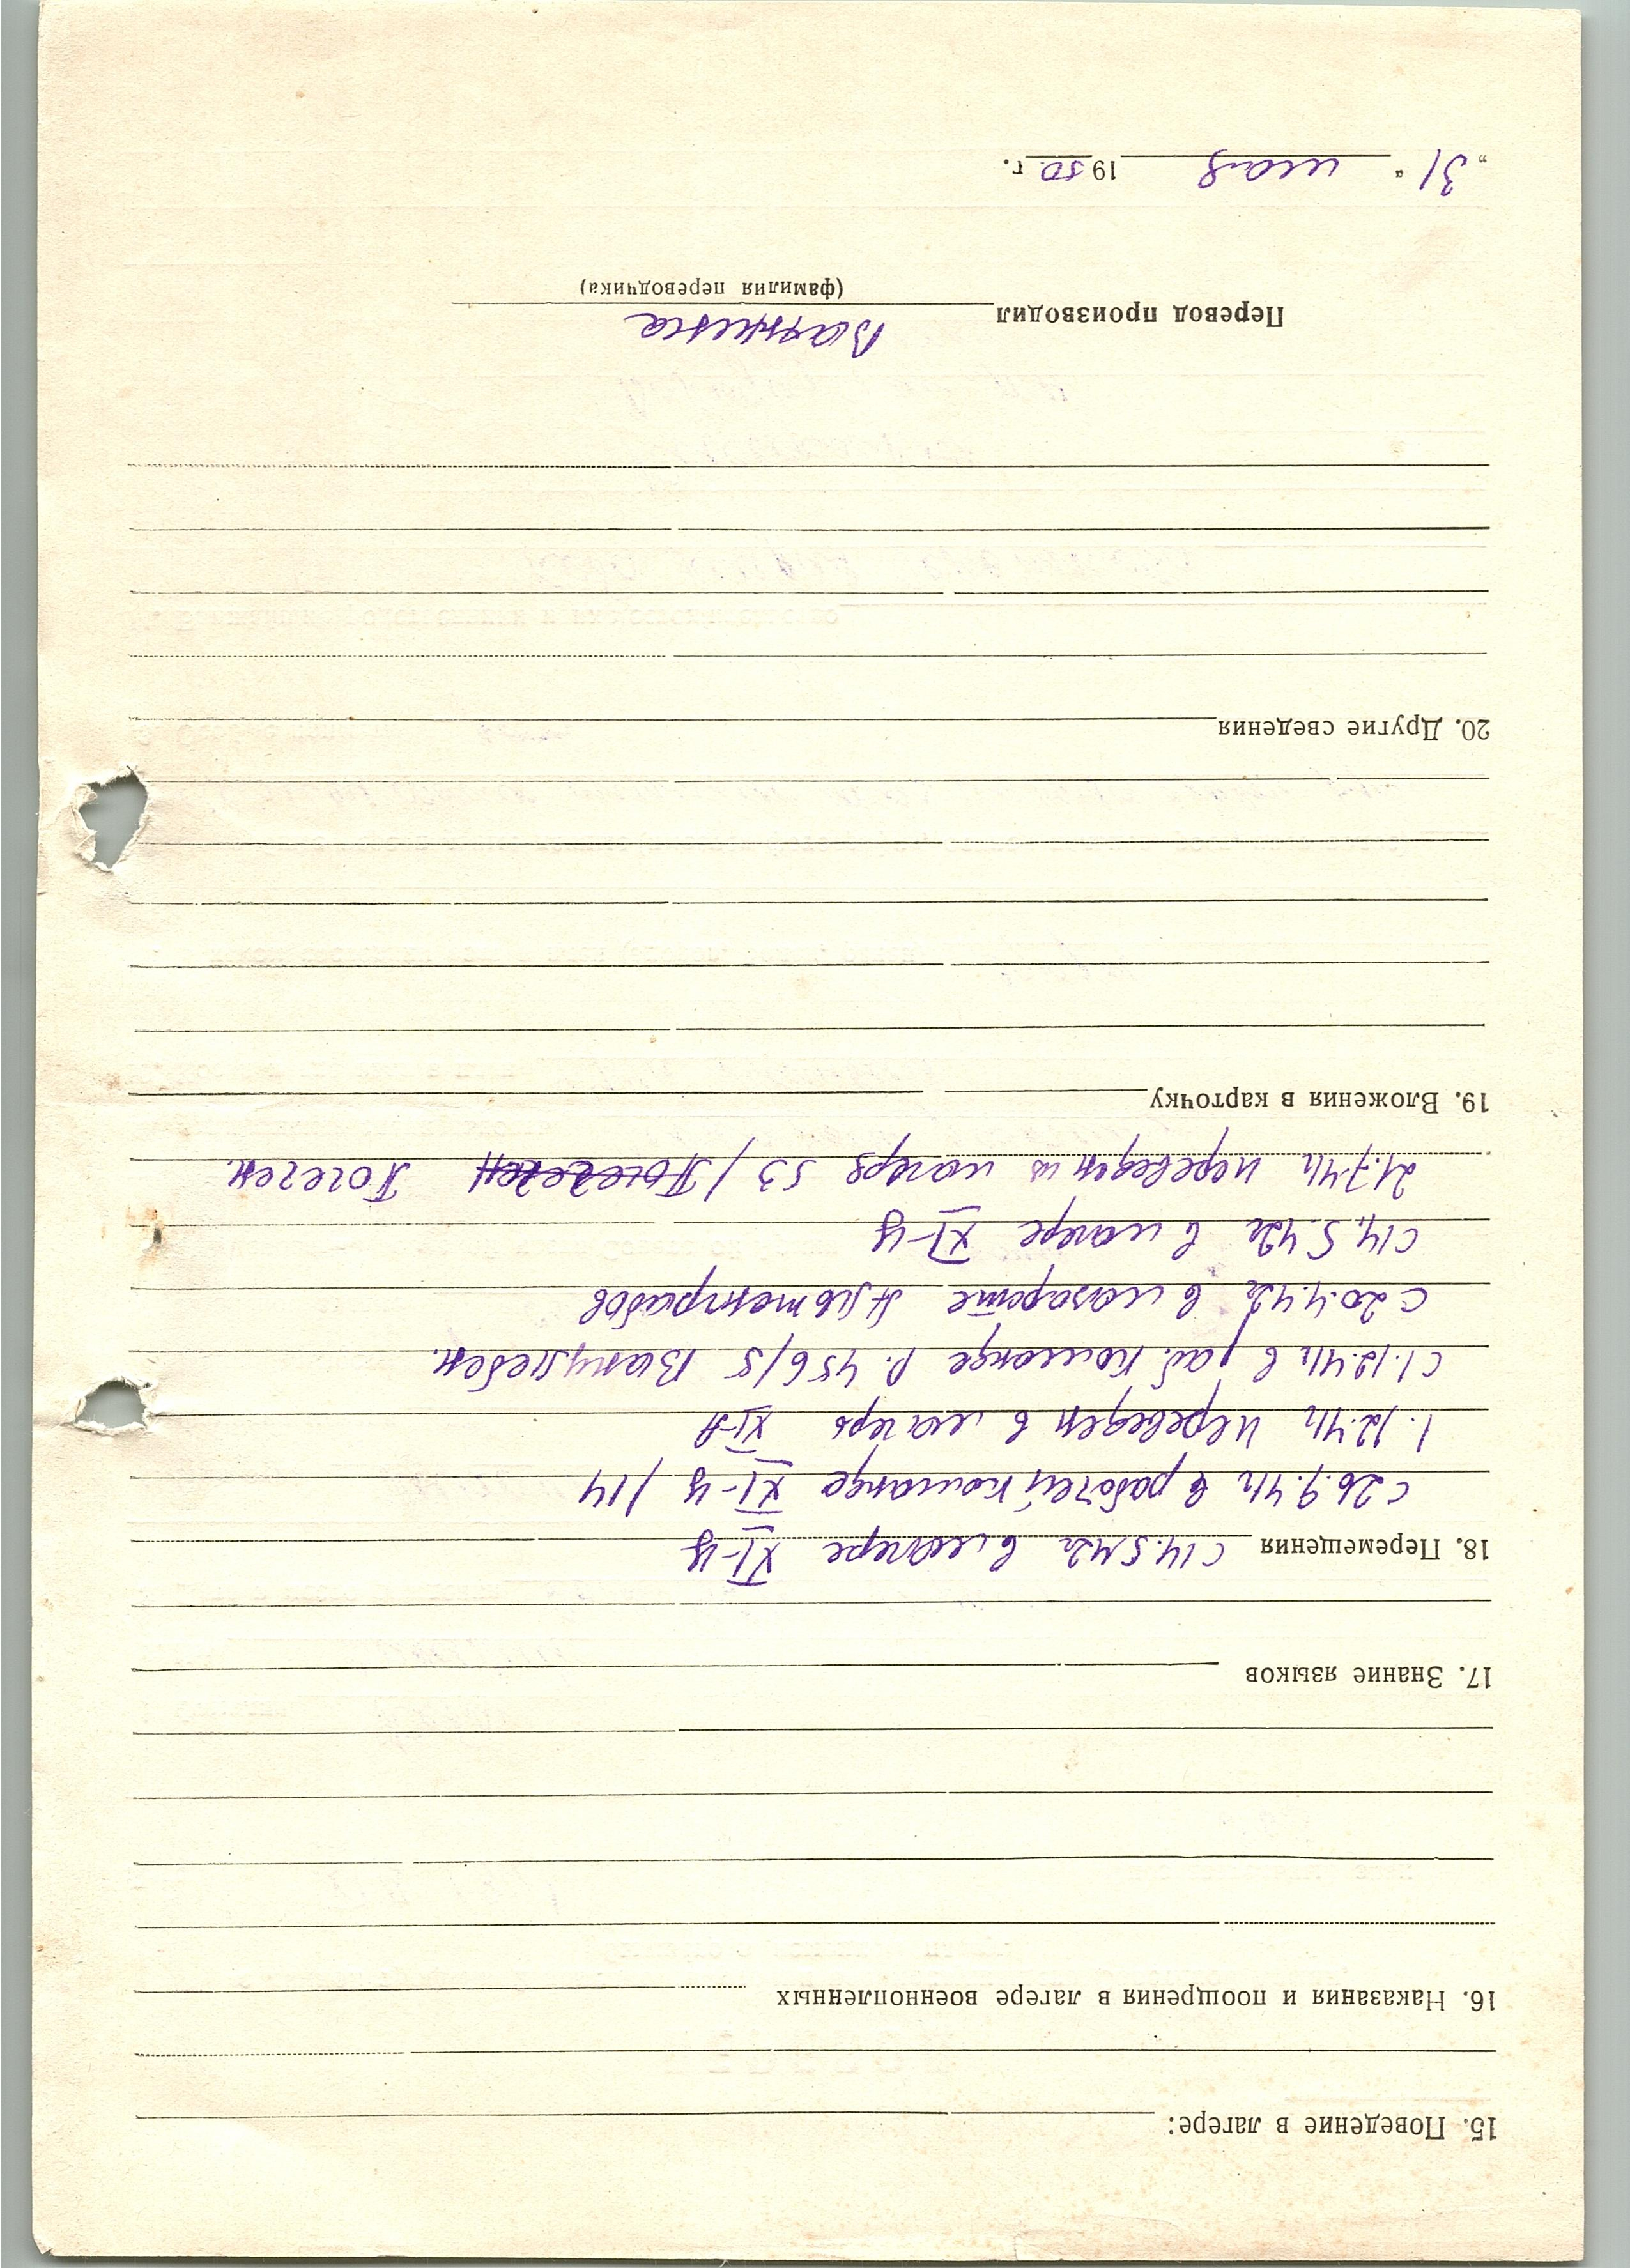 15. Поведение в лагере:
16. Наказания и поощрения в лагере военнопленных
17. Знание языков
18. Перемещения с 14.5.42г в лагере XI-Ц
с 26.9.41г в рабочей команде XI-Ц /14
1.12.41г переведен в лагерь XI-А
с 1.12.41г в раб. команде Р. 456/5 Ванцлебен.
с 20.4.42г в лазарете
с 14.5.42г в лагере XI-Ц
21.7.41г переведен из лагеря 53 / Погеген Погеген.
19. Вложения в карточку
20. Другие сведения
Перевод производил
(фамилия переводчика)
„31“ мая 1950 г.